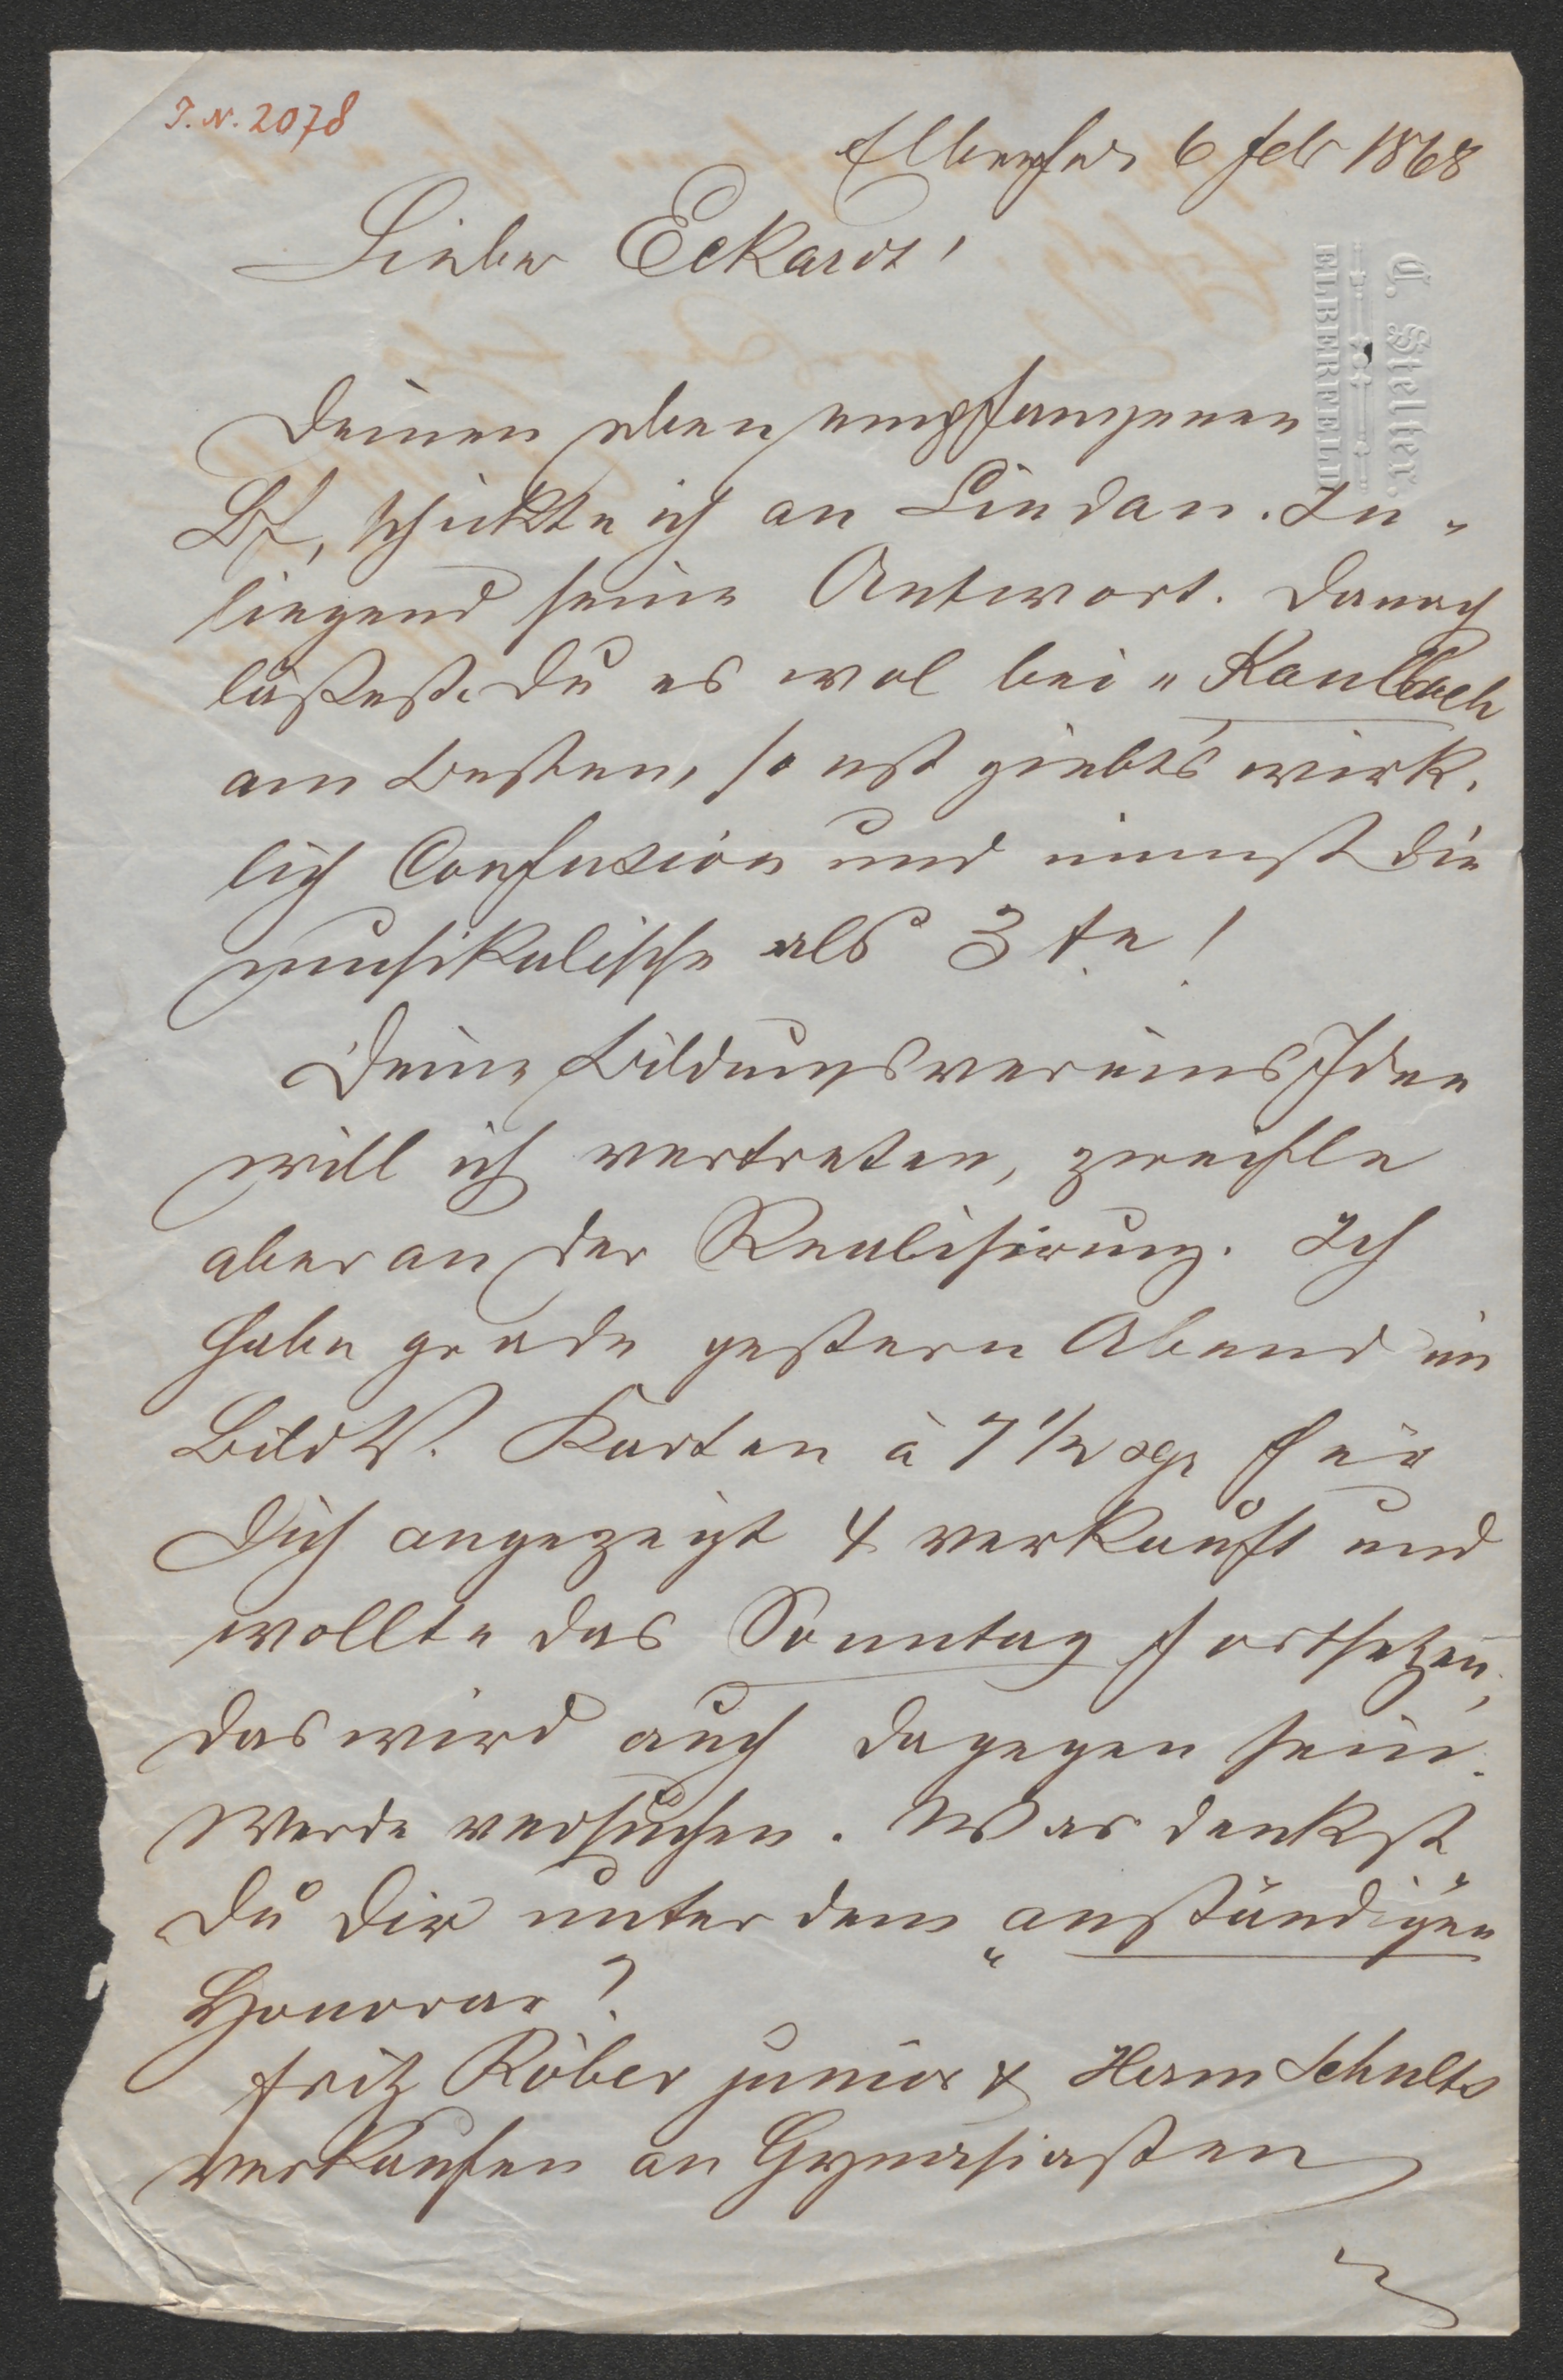 I. N. 2078
Elberfeld 6 Feb 1868
C. Stelter.
ELBERFELD
Lieber Eckardt!
Deinen eben empfangenen
Bf, schickte ich an Lindau. In-
liegend seine Antwort. Danach
läßest Du es wol bei "Kaulbach
am Besten, sonst giebts wirk-
lich Confusion und nimmst die
musikalische als 3te!
Deine Bildungsvereins Idee
will ich vertreten, zweifle
aber an der Realisirung. Ich
habe grade gestern Abend im
Bild V. Karten à 7 1/2 sgr für
Dich angezeigt 4 verkauft und
wollte das Sonntag fortsetzen,
das wird auch dagegen sein.
Werde versuchen. Was denkst
Du Dir unter dem "anständigen"
Honorar?
Fritz Röber junior & Herm Schults
verkaufen an Gymnasiasten